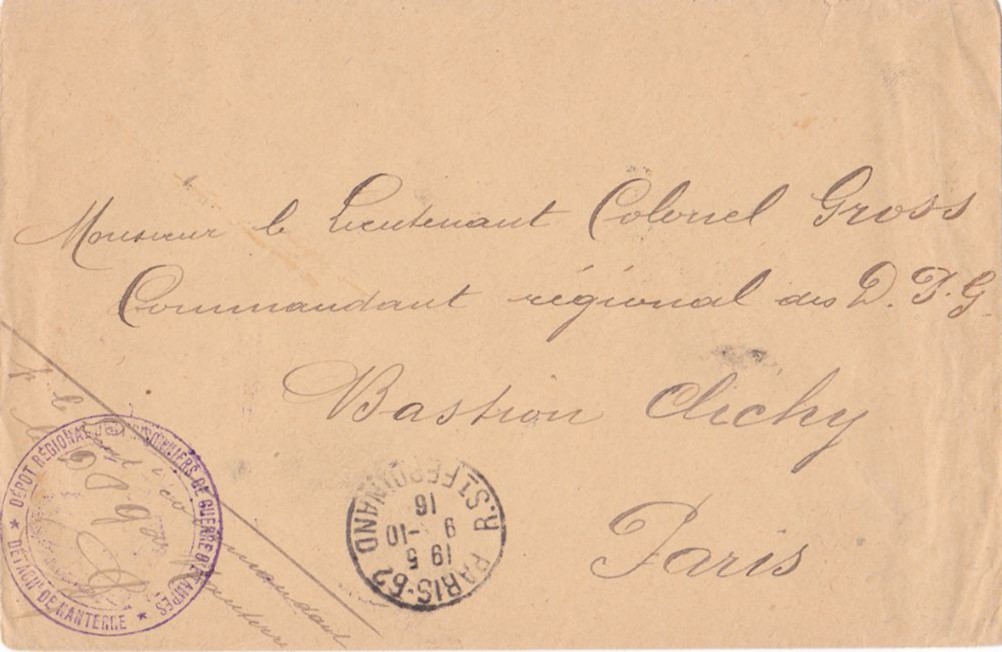 Monsieur le Lieutenant Colonel Gross
Commandant régional des D.P.G.
Bastion Clichy
Paris
DÉPOT RÉGIONAL DE PRISONNIERS DE GUERRE D'ETAMPES
★ DÉTACHT DE NANTERRE ★
PARIS-62
R. ST FERDINAND
19 5
9 -10
16
P. le
commandant
Nanterre